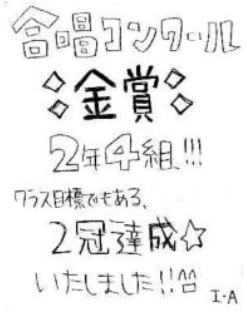 合唱コンクール
◇金賞◇
2年4組!!!
クラス目標でもある、
2冠達成☆
いたしました!!^^
I・A